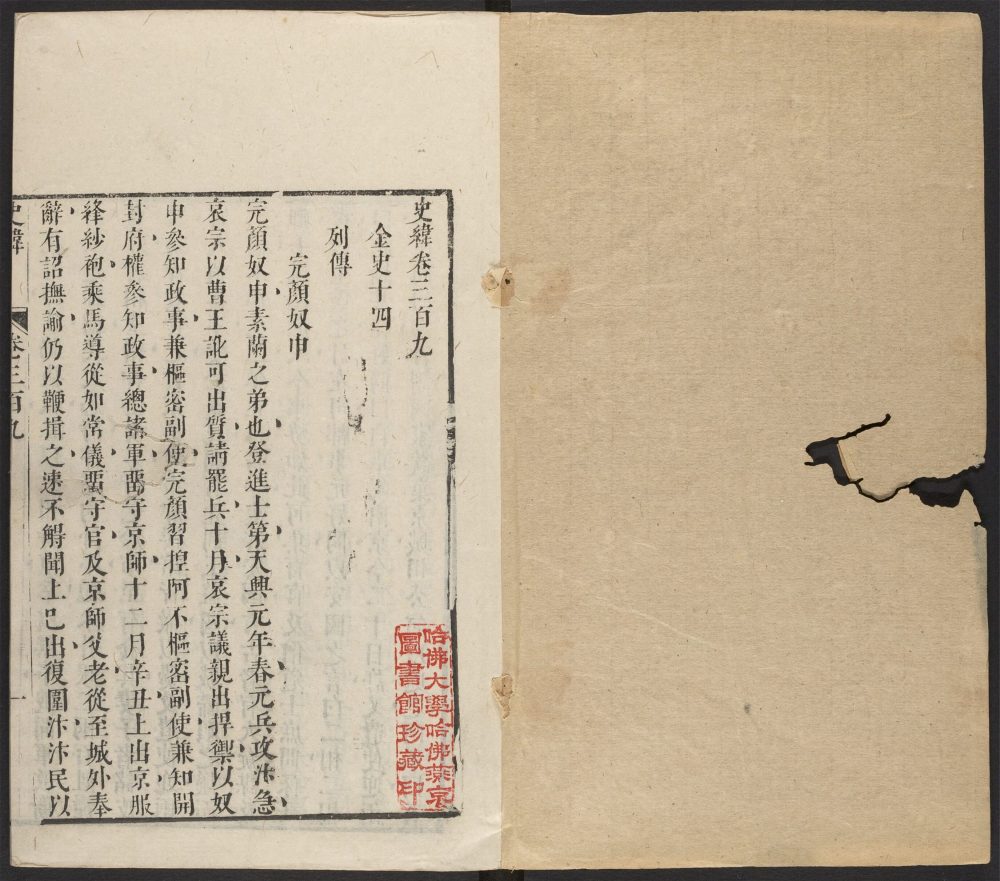 史緯卷三百九
金史十四
列傳
完顏奴申
完顏奴申素蘭之弟也登進士第天興元年春元兵攻汴急
哀宗以曹王訛可出質請罷兵十月哀宗議親出捍禦以奴
申參知政事兼樞密副使完顏習揑阿不樞密副使兼知開
封府權參知政事總諸軍畱守京師十二月辛丑上出京服
絳紗袍乘馬導從如常儀畱守官及京師父老從至城外奉
辭有詔撫諭仍以鞭揖之速不䚟聞上已出復圍汴汴民以
史緯
卷三百九
一
哈佛大學哈佛燕京
圖書館珍藏印